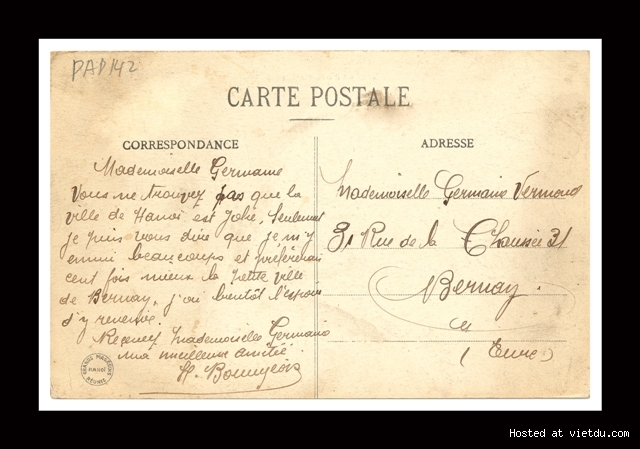 PAP142
CARTE POSTALE
CORRESPONDANCE
Mademoiselle Germaine
Vous ne trouvez pas que la
ville de Hanoi est Jolie, Seulement
je puis vous dire que je m'y
ennui beaucoups et préférerais
cent fois mieux la petite ville
de Bernay, j'ai bientôt l'espoir
d'y revenir.
Recevez Mademoiselle Germaine
ma meilleure amitié
H. Bourgeois
GRANDS MAGASINS
RÉUNIS
ADRESSE
Mademoiselle Germaine Vermond
31 Rue de la Chaussée 31
Bernay
(Eure)
Hosted at vietdu.com